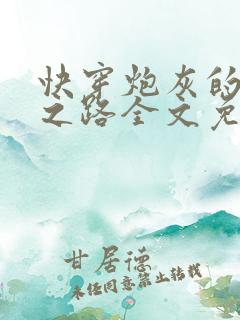 快穿炮灰的
之路全文免
甘居德
未经同意禁止转载